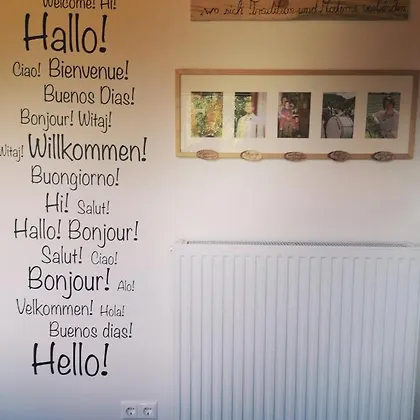 Welcome! Hi!
Hallo!
Ciao! Bienvenue!
Buenos Dias!
Bonjour! Witaj!
Witaj! Willkommen!
Buongiorno!
Hi! Salut!
Hallo! Bonjour!
Salut! Ciao!
Bonjour! Alo!
Velkommen! Hola!
Buenos dias!
Hello!
wo sich Tradition und Moderne verbinden